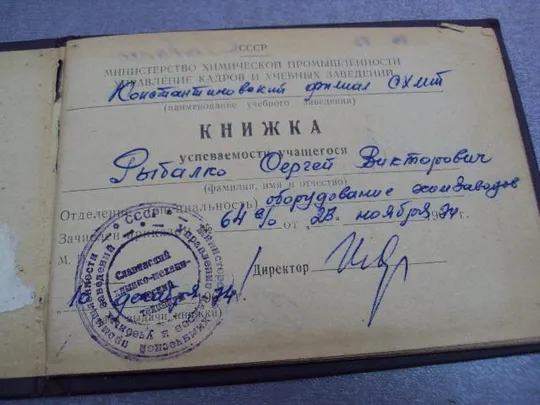 СССР
МИНИСТЕРСТВО ХИМИЧЕСКОЙ ПРОМЫШЛЕННОСТИ
УПРАВЛЕНИЕ КАДРОВ И УЧЕБНЫХ ЗАВЕДЕНИЙ
Константиновский филиал СХМТ
(наименование учебного заведения)
КНИЖКА
успеваемости учащегося
Рыбалко Сергей Викторович
(фамилия, имя и отчество)
Отделение (специальность) оборудование химзаводов
Зачислен приказом 64 от 28 ноября 1974 г.
М.
Директор
10 декабря 74
(дата выдачи книжки)
СССР
Славянский
химико-механи-
ческий
техникум